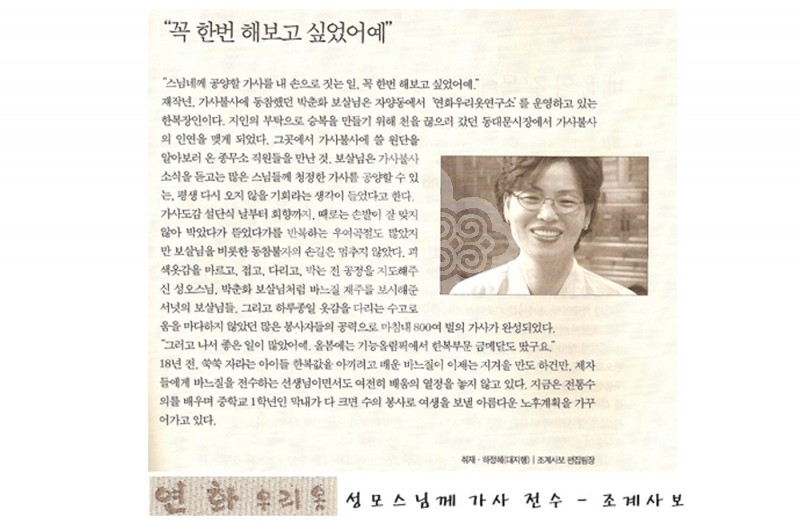 “꼭 한번 해보고 싶었어예”
“스님네께 공양할 가사를 내 손으로 짓는 일, 꼭 한번 해보고 싶었어예.”
재작년, 가사불사에 동참했던 박춘화 보살님은 자양동에서 ‘연화우리옷연구소’를 운영하고 있는
한복장인이다. 지인의 부탁으로 승복을 만들기 위해 천을 끊으러 갔던 동대문시장에서 가사불사
의 인연을 맺게 되었다. 그곳에서 가사불사에 쓸 원단을
알아보러 온 종무소 직원들을 만난 것. 보살님은 가사불사
소식을 듣고는 많은 스님들께 청정한 가사를 공양할 수 있
는, 평생 다시 오지 않을 기회라는 생각이 들었다고 한다.
가사도감 설단식 날부터 회향까지, 때로는 손발이 잘 맞지
않아 박았다가 뜯었다가를 반복하는 우여곡절도 많았지
만 보살님을 비롯한 동참불자의 손길은 멈추지 않았다. 괴
색옷감을 마르고, 접고, 다리고, 박는 전 공정을 지도해주
신 성오스님, 박춘화 보살님처럼 바느질 재주를 보시해준
서넛의 보살님들, 그리고 하루종일 옷감을 다리는 수고로
움을 마다하지 않았던 많은 봉사자들의 공력으로 마침내 800여 벌의 가사가 완성되었다.
“그러고 나서 좋은 일이 많았어예. 올봄에는 기능올림픽에서 한복부문 금메달도 땄구요.”
18년 전, 쑥쑥 자라는 아이들 한복값을 아끼려고 배운 바느질이 이제는 지겨울 만도 하건만, 제자
들에게 바느질을 전수하는 선생님이면서도 여전히 배움의 열정을 놓지 않고 있다. 지금은 전통수
의를 배우며 중학교 1학년인 막내가 다 크면 수의 봉사로 여생을 보낼 아름다운 노후계획을 가꾸
어가고 있다.
취재 · 하정혜(대지행) | 조계사보 편집팀장
연화우리옷 성모스님께 가사 전수 - 조계사보